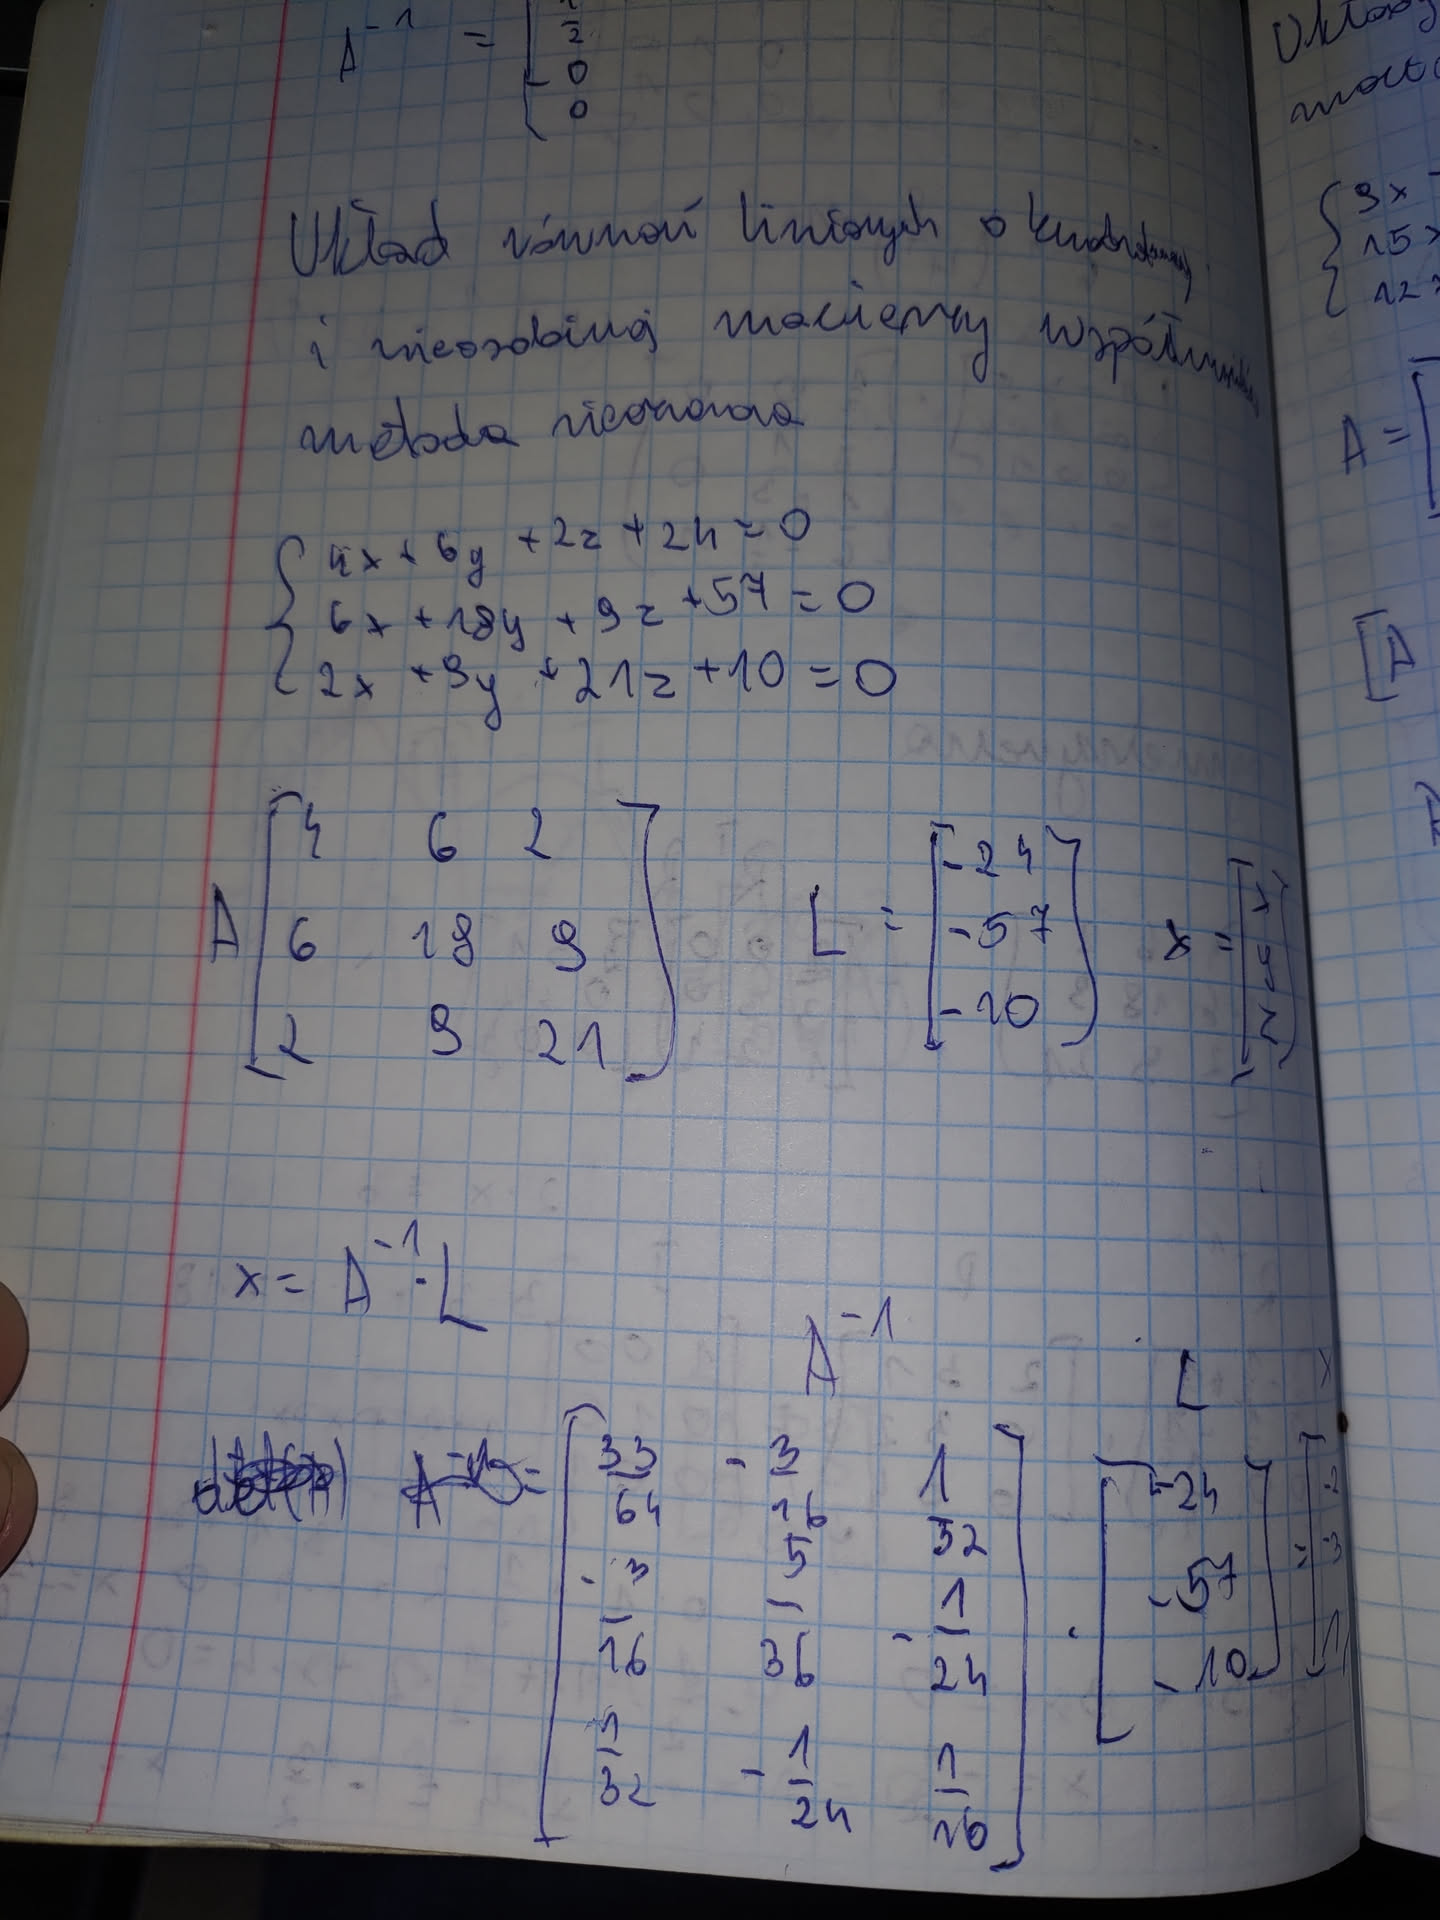 A⁻¹ = [ 1/2
0
0
Układ równań liniowych o kwadratowej
i nieosobliwej macierzy współczynników
metoda nieoznaczona
4x + 6y + 2z + 24 = 0
6x + 18y + 9z + 57 = 0
2x + 9y + 21z + 10 = 0
A [ 4 6 2
6 18 9
2 9 21 ]
L = [ -24
-57
-10 ]
x = [ x
y
z ]
x = A⁻¹ · L
A⁻¹ L x
= [ 33/64 - 3/16 1/32
- 3/16 5/36 - 1/24
1/32 - 1/24 1/16 ]
· [ -24
-57
-10 ]
= [ -2
-3
1 ]
Układ
{ 9x
15x
12x
A = [
[A